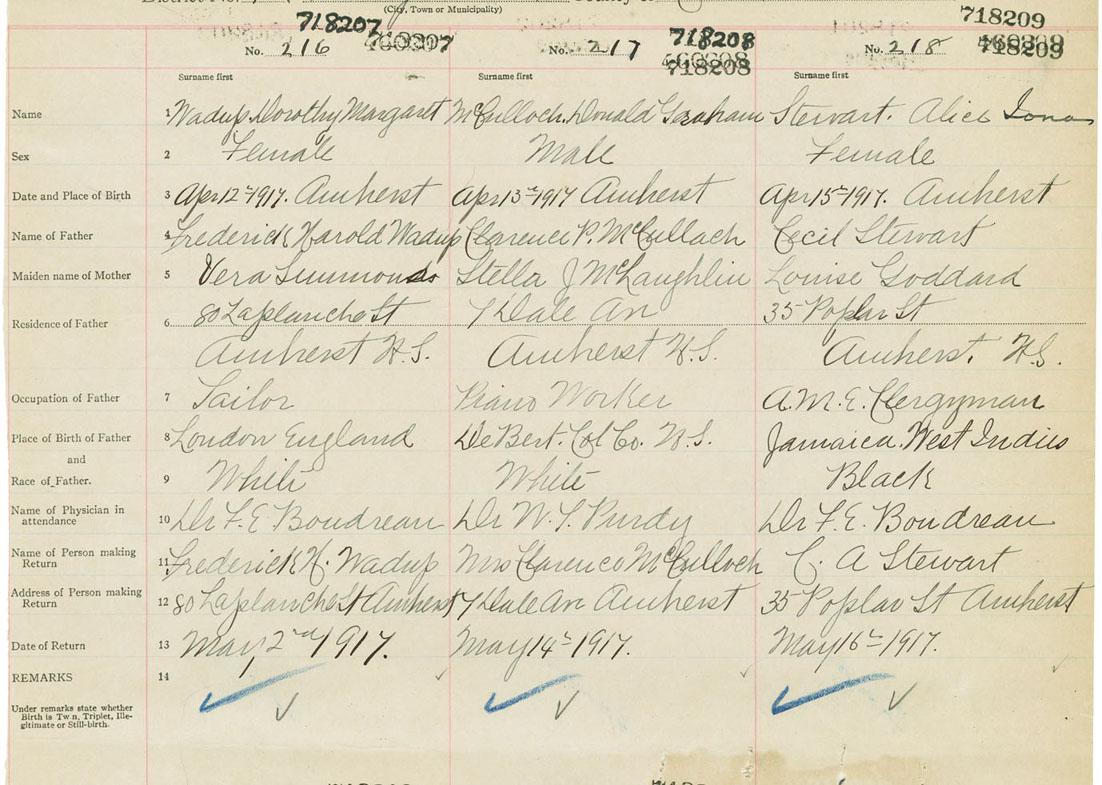 (City, Town or Municipality)
718207 718208 718209
No. 216 No. 217 No. 218
718208 718209
Surname first Surname first Surname first
Name 1 Wadup, Dorothy Margaret McCulloch, Donald Graham Stewart. Alice Iona
Sex 2 Female Male Female
Date and Place of Birth 3 Apr 12th 1917. Amherst Apr 13th 1917 Amherst Apr 15th 1917. Amherst
Name of Father 4 Frederick Harold Wadup Clarence P. McCulloch Cecil Stewart
Maiden name of Mother 5 Vera Simmonds Stella J McLaughlin Louise Goddard
80 Laplanche St 7 Dale Av 35 Poplar St
Residence of Father 6
Amherst N.S. Amherst N.S. Amherst, N.S.
Occupation of Father 7 Tailor Piano Worker A.M.E. Clergyman
Place of Birth of Father 8 London England DeBert. Col Co. N.S. Jamaica. West Indies
and
Race of Father. 9 White White Black
Name of Physician in
attendance 10 Dr F. E. Boudreau Dr W. T. Purdy Dr F. E. Boudreau
Name of Person making
Return 11 Frederick H. Wadup Mrs Clarence McCulloch C. A Stewart
Address of Person making
Return 12 80 Laplanche St Amherst 7 Dale Av Amherst 35 Poplar St Amherst
Date of Return 13 May, 2nd 1917. May 14th 1917. May 16th 1917.
REMARKS 14
Under remarks state whether
Birth is Twin, Triplet, Ille-
gitimate or Still-birth.